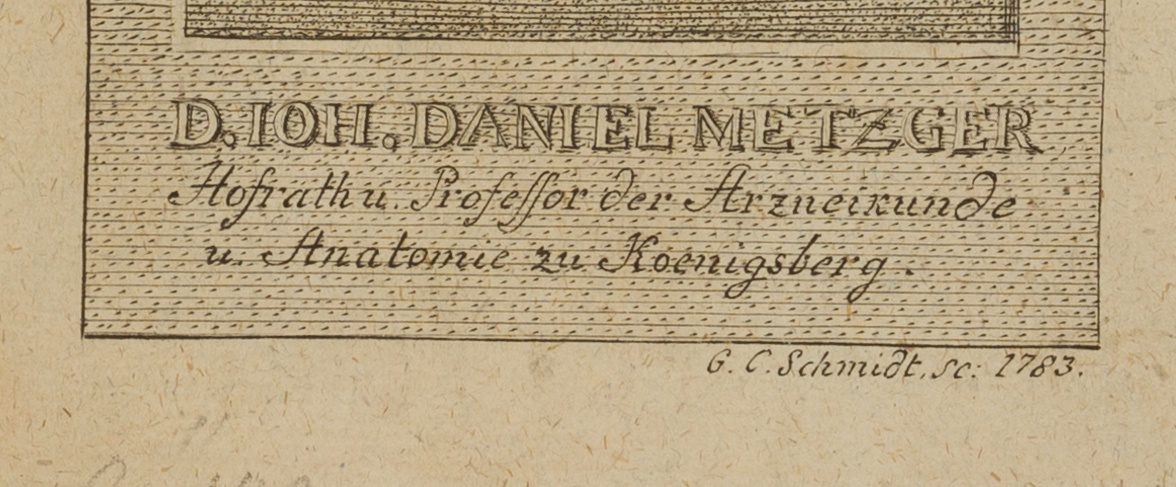 D. IOH. DANIEL METZGER
Hofrath u. Professor der Arzneikunde
u. Anatomie zu Koenigsberg.
G. C. Schmidt, sc: 1783.